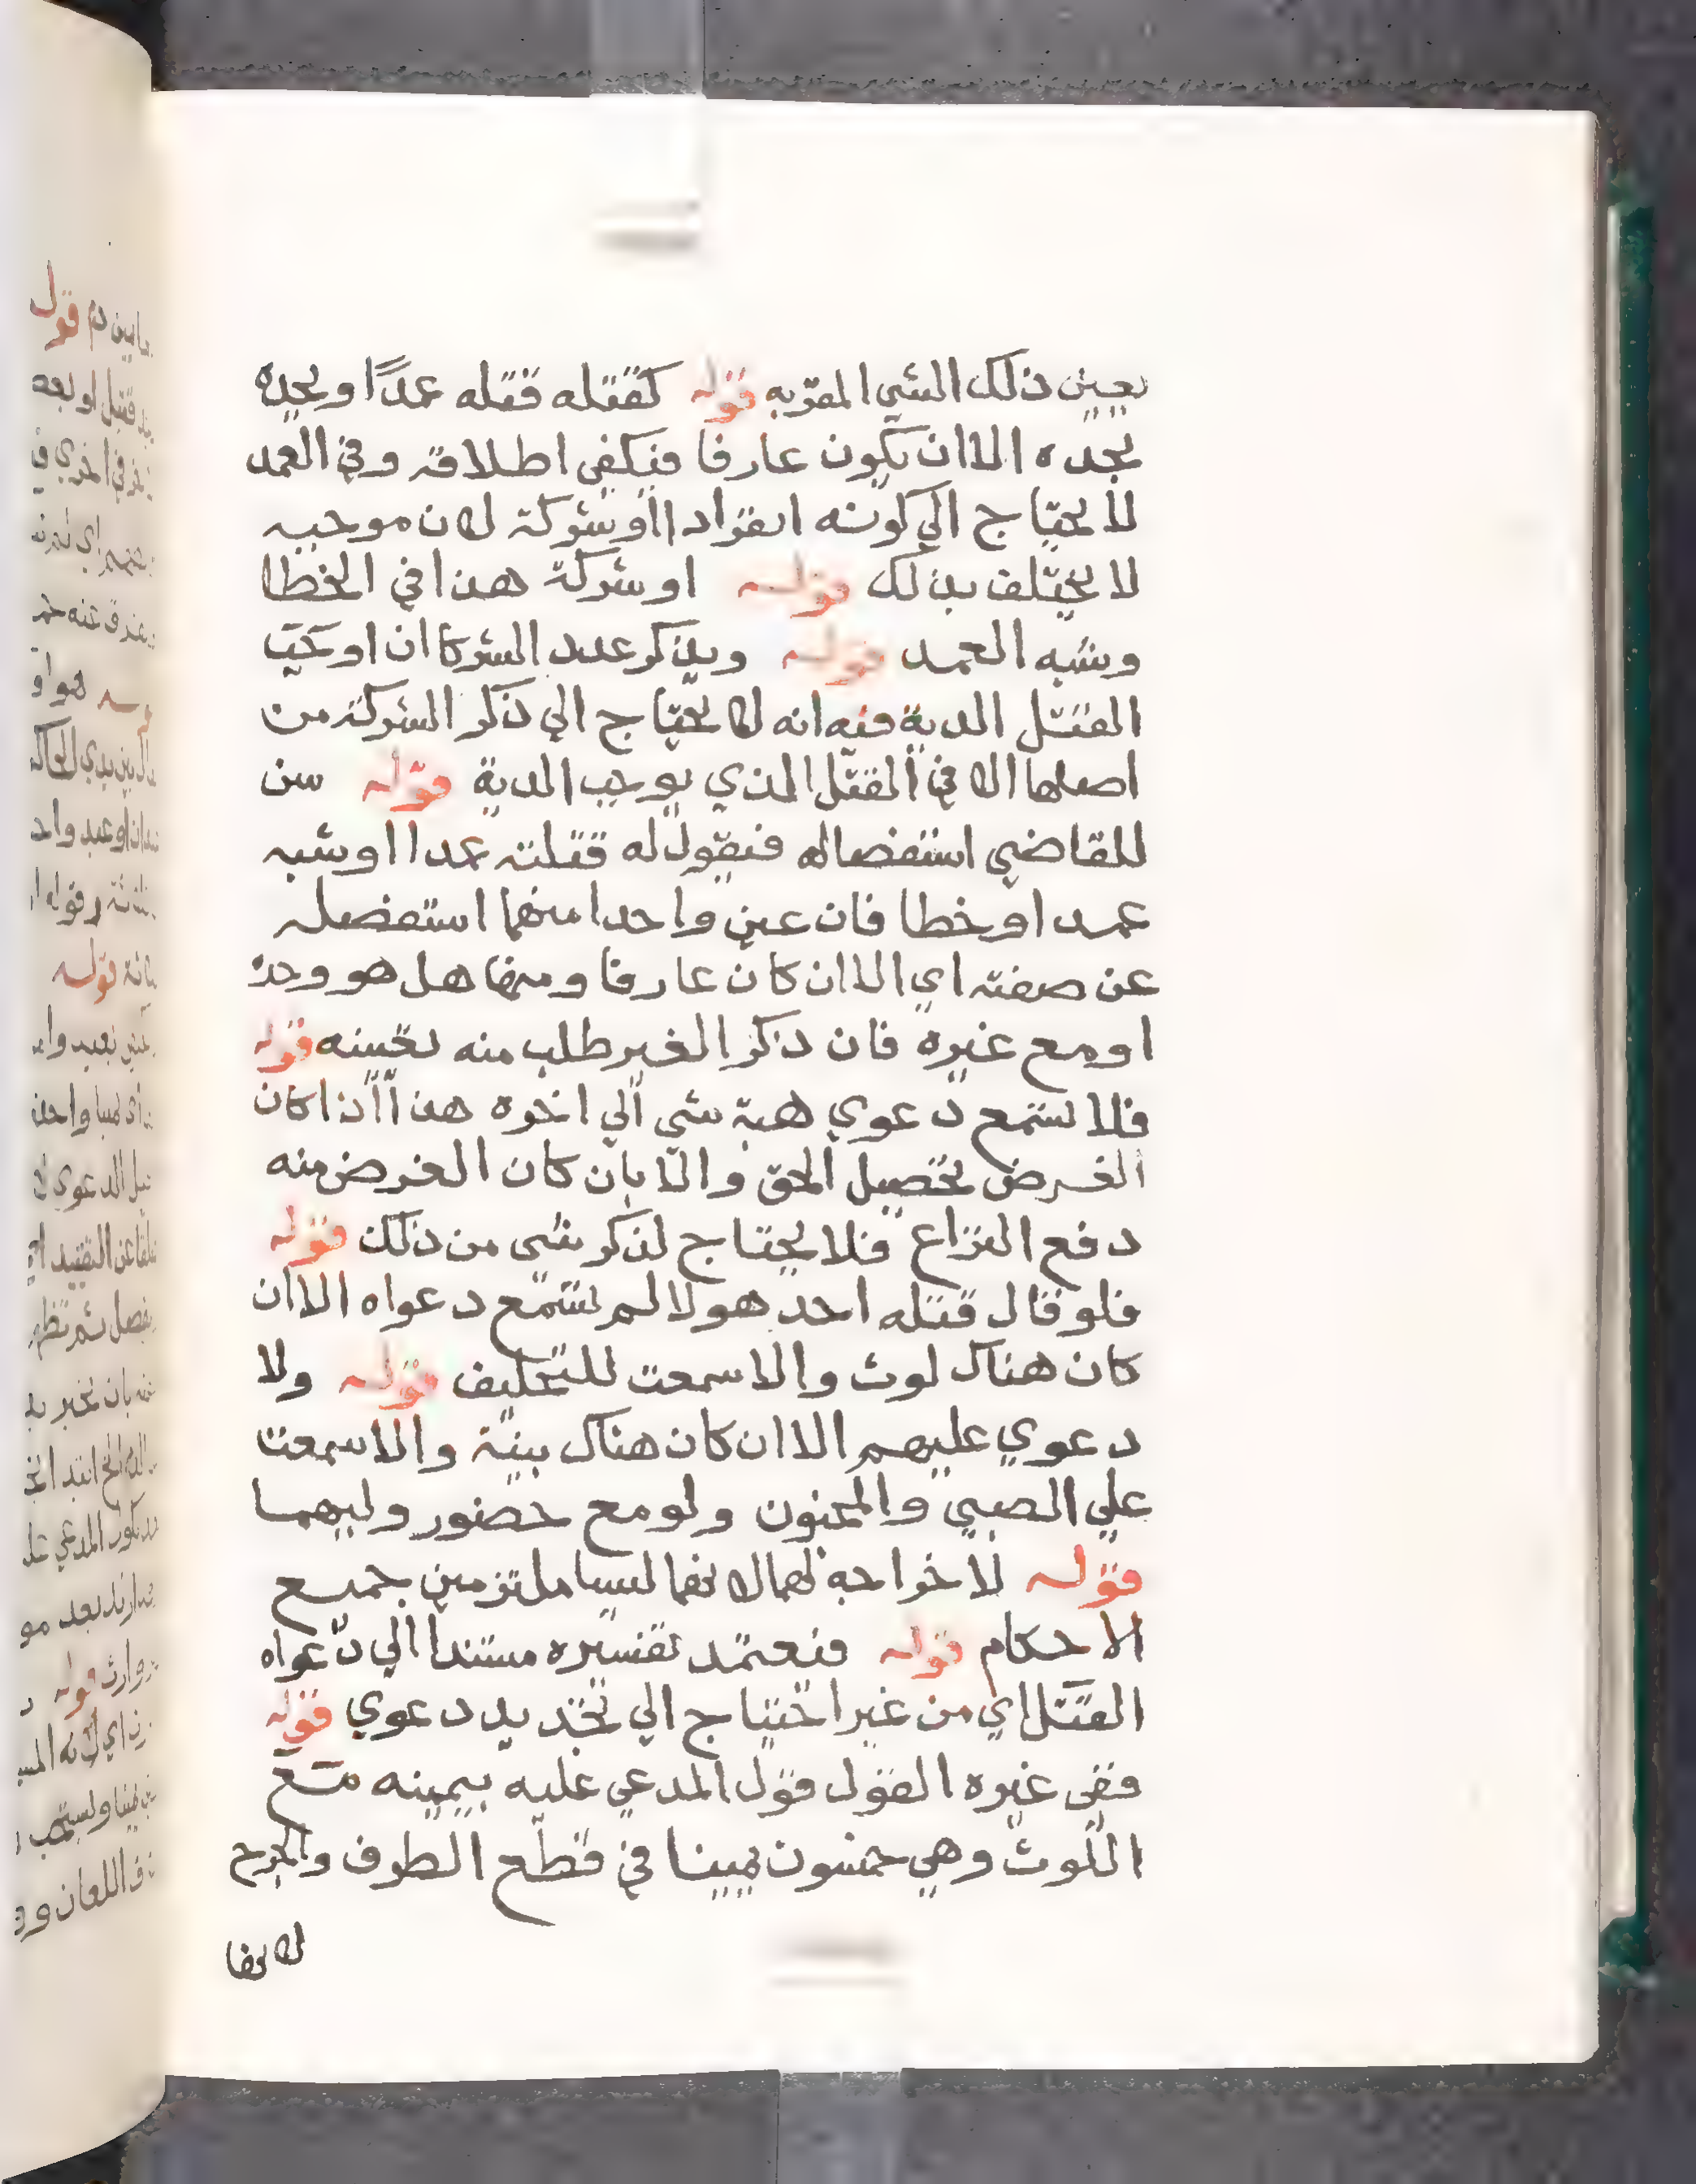 يعين ذلك الشي المقر به قوله كقتله قتله عمدًا ويحده
بحده الا ان يكون عارفا فيكفى اطلاقه وفي العمد
لا يحتاج الي كونه انفرادا او شركة لان موجبه
لا يختلف بذلك قوله او شركة هذا في الخطا
وشبه العمد قوله ويذكر عدد الشركا ان اوجب
القتل الدية فيه انه لا يحتاج الي ذكر الشركة من
اصلها الا في القتل الذي يوجب الدية قوله سن
للقاضي استفصاله فيقول له قتلته عمدا او شبه
عمد او خطا فان عين واحدا منهما استفصله
عن صفته اي الا ان كان عارفا ومنها هل هو وحده
او مع غيره فان ذكر الغير طلب منه تعيينه قوله
فلا تسمع دعوي هبة شي الي اخره هذا اذا كان
الغرض تحصيل الحق والا بان كان الغرض منه
دفع النزاع فلا يحتاج لذكر شي من ذلك قوله
فلو قال قتله احد هولا لم تسمع دعواه الا ان
كان هناك لوث والا سمعت للتحليف قوله ولا
دعوي عليهم الا ان كان هناك بينة والا سمعت
علي الصبي والمجنون ولو مع حضور وليهما
قوله لاخراجه لهما لانهما ليسا ملتزمين جميع
الاحكام قوله فيعتمد تفسيره مستندا الي دعواه
القتل اي من غير احتياج الي تجديد دعوي قوله
ففي غيره القول قول المدعي عليه بيمينه مع
اللوث وهي خمسون يمينا في قطع الطرف والجرح
لانها